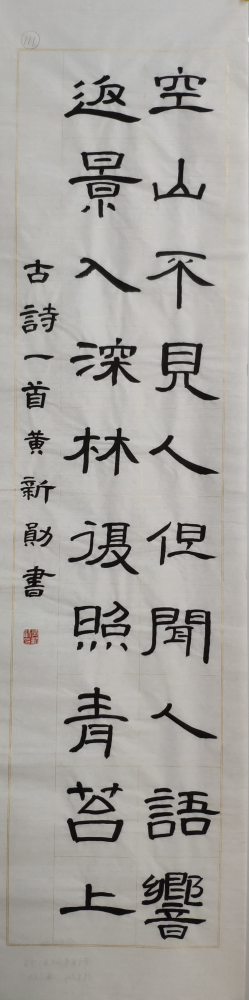 空山不見人但聞人語響
返景入深林復照青苔上
古詩一首黄新勛書